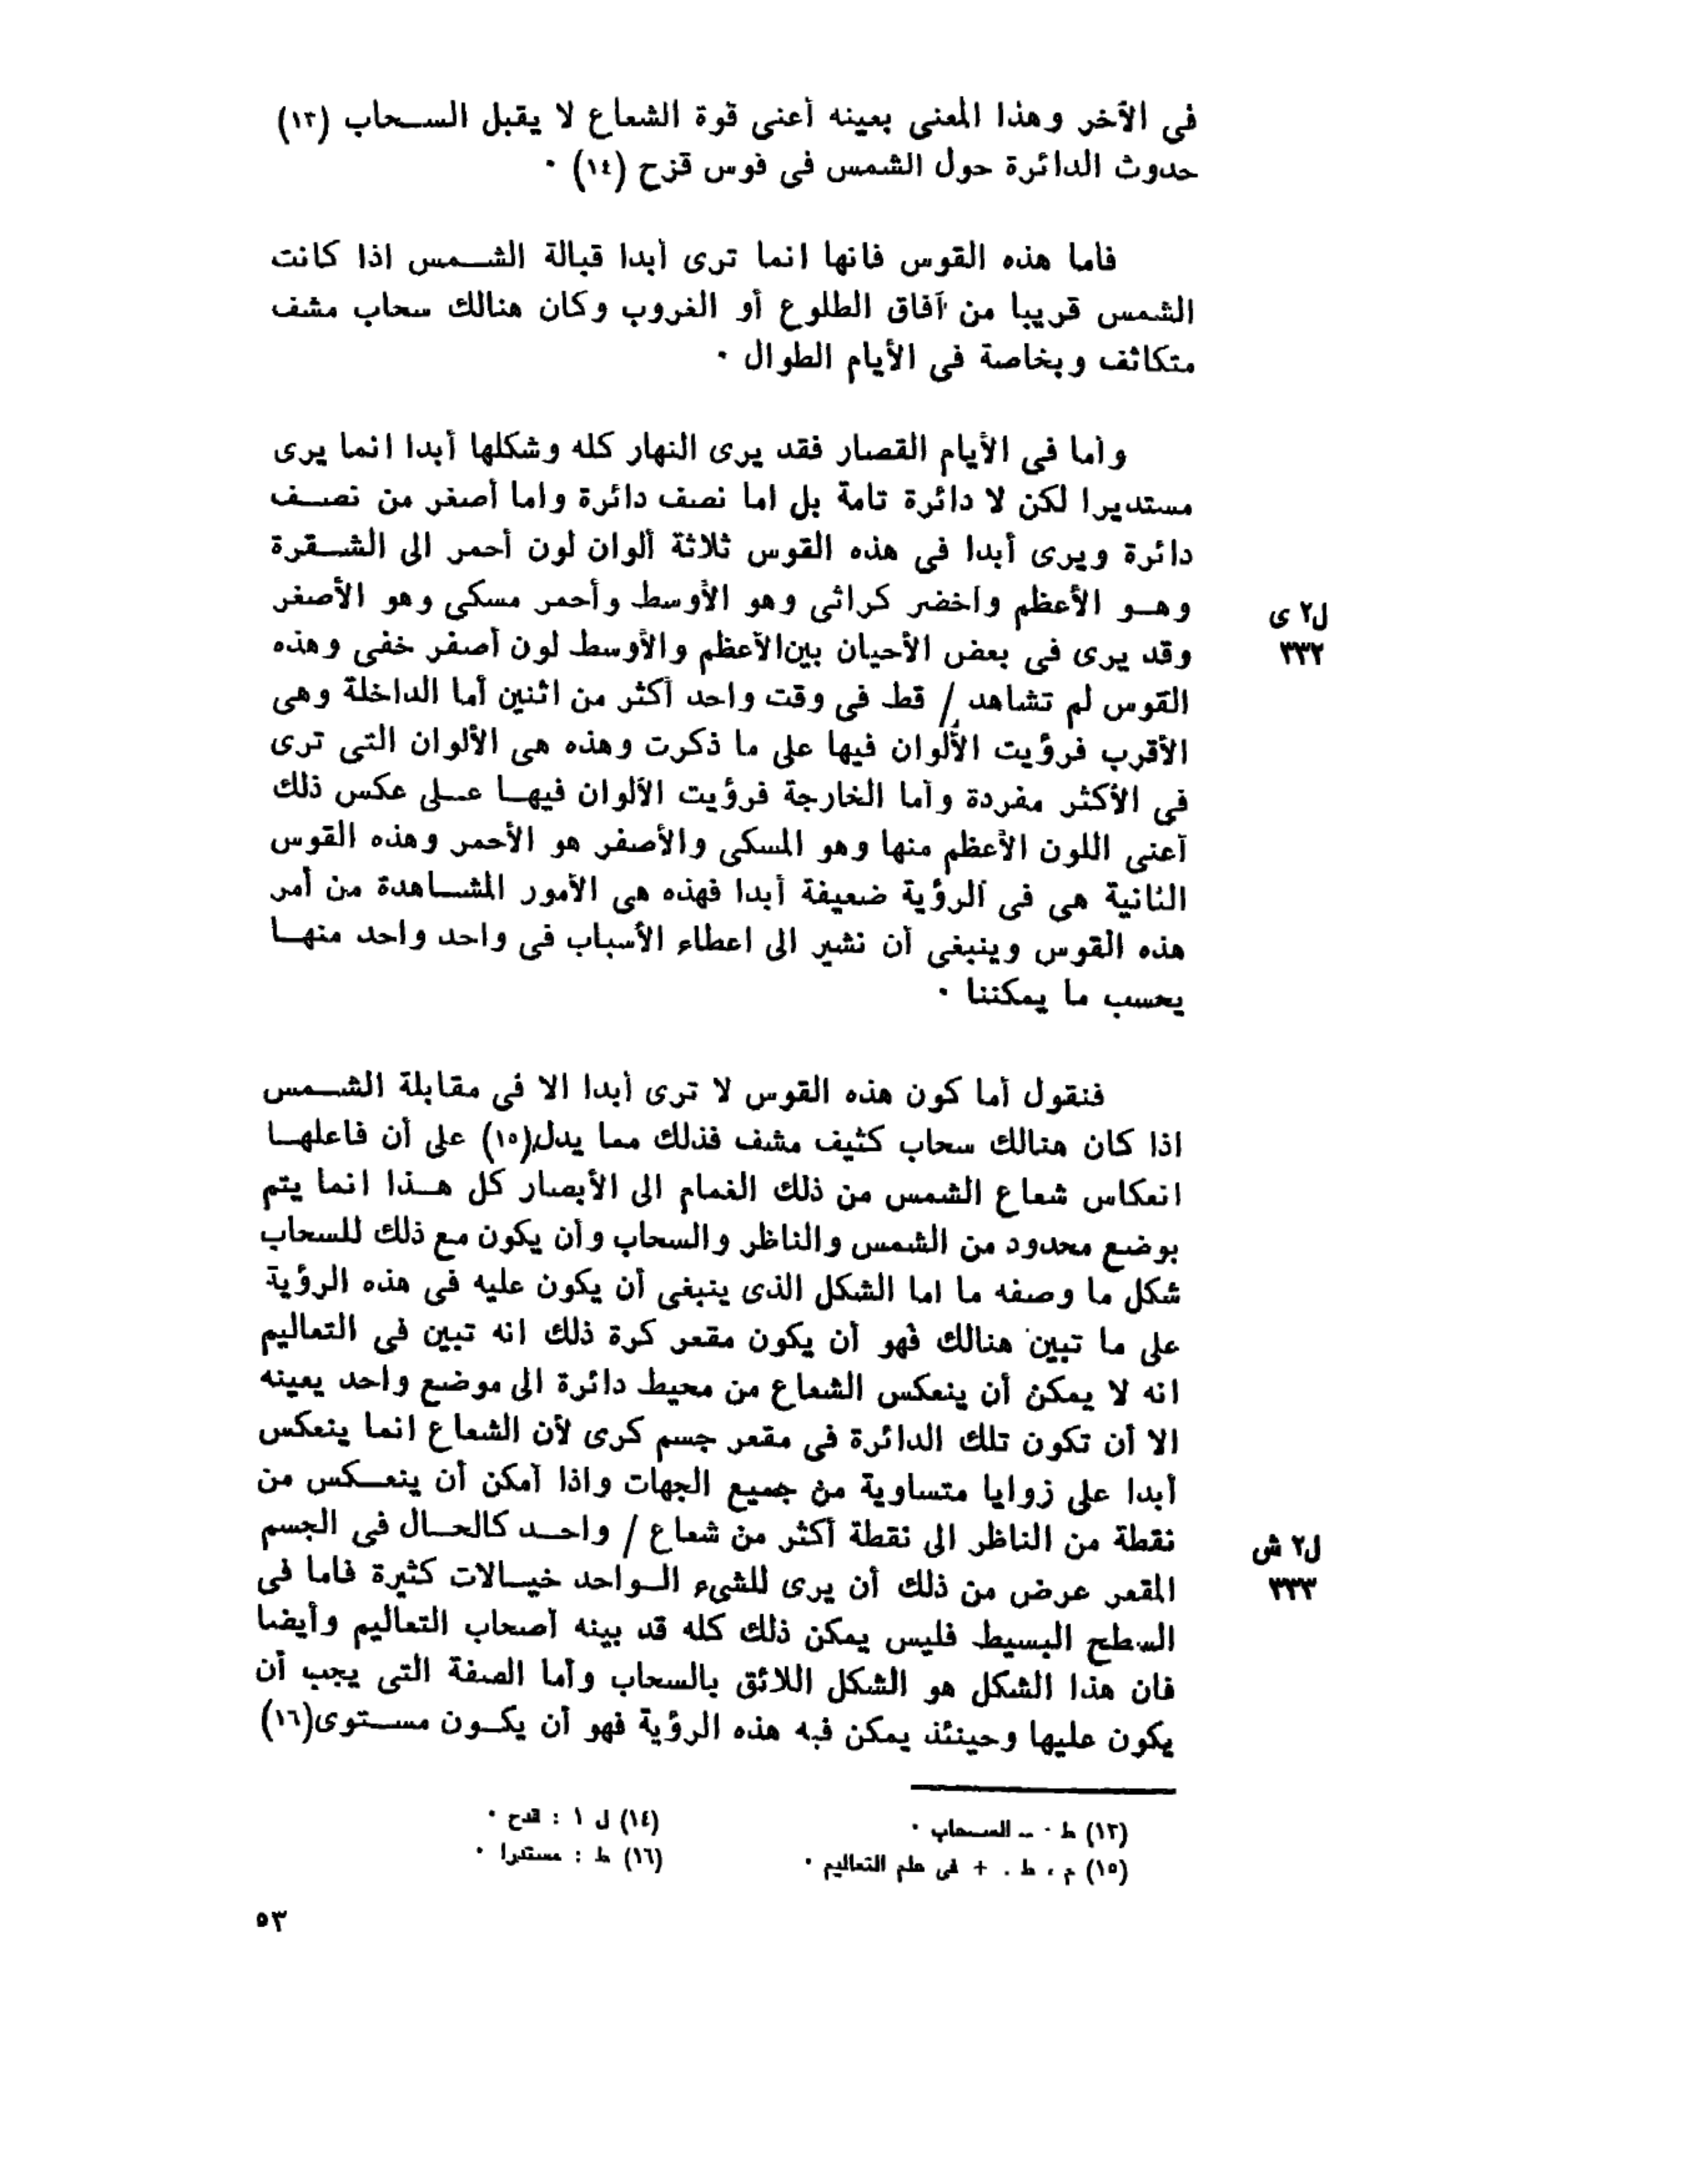 فى الآخر وهذا المعنى بعينه أعنى قوة الشعاع لا يقبل السحاب (١٣)
حدوث الدائرة حول الشمس فى فوس قزح (١٤) ٠
فاما هذه القوس فانها انما ترى أبدا قبالة الشمس اذا كانت
الشمس قريبا من آفاق الطلوع أو الغروب وكان هنالك سحاب مشف
متكاثف وبخاصة فى الأيام الطوال ٠
وأما فى الأيام القصار فقد يرى النهار كله وشكلها أبدا انما يرى
مستديرا لكن لا دائرة تامة بل اما نصف دائرة واما أصغر من نصف
دائرة ويرى أبدا فى هذه القوس ثلاثة ألوان لون أحمر الى الشقرة
وهو الأعظم وأخضر كراثى وهو الأوسط وأحمر مسكى وهو الأصغر
ل٢ ى
وقد يرى فى بعض الأحيان بين الأعظم والأوسط لون أصفر خفى وهذه
٣٣٢
القوس لم تشاهد / قط فى وقت واحد أكثر من اثنين أما الداخلة وهى
الأقرب فرؤيت الألوان فيها على ما ذكرت وهذه هى الألوان التى ترى
فى الأكثر مفردة وأما الخارجة فرؤيت الألوان فيها على عكس ذلك
أعنى اللون الأعظم منها وهو المسكى والأصفر هو الأحمر وهذه القوس
الثانية هى فى الرؤية ضعيفة أبدا فهذه هى الأمور المشاهدة من أمر
هذه القوس وينبغى أن نشير الى اعطاء الأسباب فى واحد واحد منها
بحسب ما يمكننا ٠
فنقول أما كون هذه القوس لا ترى أبدا الا فى مقابلة الشمس
اذا كان هنالك سحاب كثيف مشف فذلك مما يدل(١٥) على أن فاعلها
انعكاس شعاع الشمس من ذلك الغمام الى الأبصار كل هذا انما يتم
بوضع محدود من الشمس والناظر والسحاب وأن يكون مع ذلك للسحاب
شكل ما وصفه ما اما الشكل الذى ينبغى أن يكون عليه فى هذه الرؤية
على ما تبين هنالك فهو أن يكون مقعر كرة ذلك انه تبين فى التعاليم
انه لا يمكن أن ينعكس الشعاع من محيط دائرة الى موضع واحد بعينه
الا أن تكون تلك الدائرة فى مقعر جسم كرى لأن الشعاع انما ينعكس
أبدا على زوايا متساوية من جميع الجهات واذا أمكن أن ينعكس من
نقطة من الناظر الى نقطة أكثر من شعاع / واحد كالحال فى الجسم
ل٢ ش
المقعر عرض من ذلك أن يرى للشىء الواحد خيالات كثيرة فاما فى
٣٣٣
السطح البسيط فليس يمكن ذلك كله قد بينه أصحاب التعاليم وأيضا
فان هذا الشكل هو الشكل اللائق بالسحاب وأما الصفة التى يجب أن
يكون عليها وحينئذ يمكن فبه هذه الرؤية فهو أن يكون مستوى(١٦)
(١٣) ط ٠ ــ السحاب ٠
(١٤) ل ١ : قدح ٠
(١٥) م ، ط . + فى علم التعاليم ٠
(١٦) ط : مستدرا ٠
٥٣